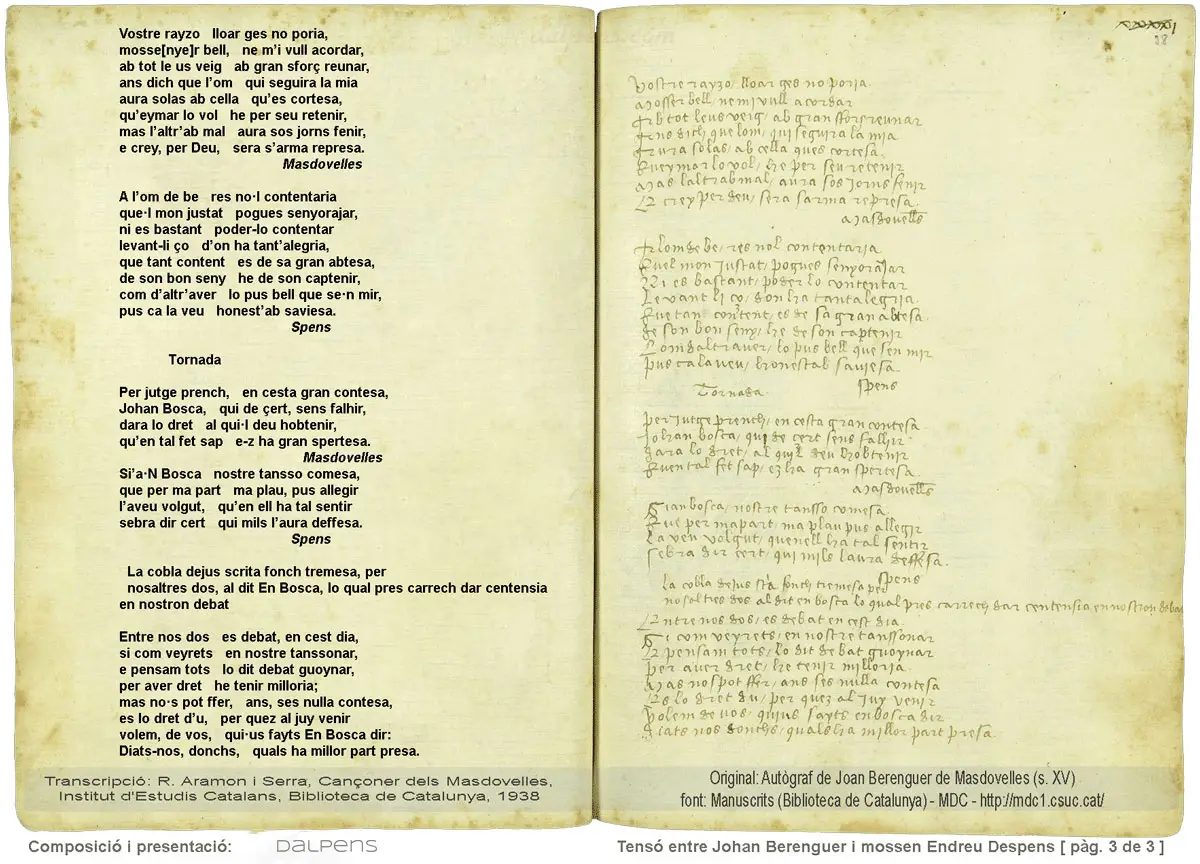 Vostre rayzo lloar ges no poria,
mosse[nye]r bell, ne m'i vull acordar,
ab tot le us veig ab gran sforç reunar,
ans dich que l'om qui seguira la mia
aura solas ab cella qu'es cortesa,
qu'eymar lo vol he per seu retenir,
mas l'altr'ab mal aura sos jorns fenir,
e crey, per Deu, sera s'arma represa.
Masdovelles
A l'om de be res no·l contentaria
que·l mon justat pogues senyorajar,
ni es bastant poder-lo contentar
levant-li ço d'on ha tant'alegria,
que tant content es de sa gran abtesa,
de son bon seny he de son captenir,
com d'altr'aver lo pus bell que se·n mir,
pus ca la veu honest'ab saviesa.
Spens
Tornada
Per jutge prench, en cesta gran contesa,
Johan Bosca, qui de çert, sens falhir,
dara lo dret al qui·l deu hobtenir,
qu'en tal fet sap e-z ha gran spertesa.
Masdovelles
Si'a·N Bosca nostre tansso comesa,
que per ma part ma plau, pus allegir
l'aveu volgut, qu'en ell ha tal sentir
sebra dir cert qui mils l'aura deffesa.
Spens
La cobla dejus scrita fonch tremesa, per
nosaltres dos, al dit En Bosca, lo qual pres carrech dar centensia
en nostron debat
Entre nos dos es debat, en cest dia,
si com veyrets en nostre tanssonar,
e pensam tots lo dit debat guoynar,
per aver dret he tenir milloria;
mas no·s pot ffer, ans, ses nulla contesa,
es lo dret d'u, per quez al juy venir
volem, de vos, qui·us fayts En Bosca dir:
Diats-nos, donchs, quals ha millor part presa.
Transcripció: R. Aramon i Serra, Cançoner dels Masdovelles,
Institut d'Estudis Catalans, Biblioteca de Catalunya, 1938
Vostre rayzo / lloar ges no poria
Mosser bell / ne mi vull acordar
Ab tot leus veig / ab gran sforç reunar
Ans dich que lom / qui seguira la mia
Aura solas / ab cella ques cortesa
Queymar lo vol / he per seu retenir
Mas laltrab mal / aura sos jorns fenir
E crey per deu / sera sarma represa
Masdovells
A lom de be / res nol contentaria
Quel mon justat / pogues senyorajar
Ni es bastant / poder lo contentar
Levant li ço / don ha tantalegria
Que tan content / es de sa gran abtesa
de son bon seny / he de son captenir
Com daltraver / lo pus bell que sen mir
pus ca la veu / honestab saviesa
Spens
Tornada
per jutge prench / en cesta gran contesa
Johan bosca / qui de cert sens fallir
dara lo dret / al quil deu hobtenir
Quental fet sap / ez ha gran spertesa
Masdovells
Sian bosca / nostre tansso comesa
Que per ma part / ma plau pus allegir
La veu volgut / quen ell ha tal sentir
Sebra dir cert / qui mils laura deffesa
spens
La cobla dejus sta fonch tremesa per
nosaltres dos al dit en bosca lo qual pres carrech dar centensia en nostron debat
Entre nos dos / es debat en cest dia
Si com veyrets / en nostre tanssonar
E pensam tots / lo dit debat guoynar
per aver dret / he tenir milloria
Mas nos pot ffer / ans ses nulla contesa
Es lo dret du / per quez al juy venir
Volem de vos / quius fayts en bosca dir
Diats nos donchs / quals ha millor part presa
Original: Autògraf de Joan Berenguer de Masdovelles (s. XV)
font: Manuscrits (Biblioteca de Catalunya) - MDC - http://mdc1.csuc.cat/
Composició i presentació: DALPENS
Tensó entre Johan Berenguer i mossen Endreu Despens [ pàg. 3 de 3 ]